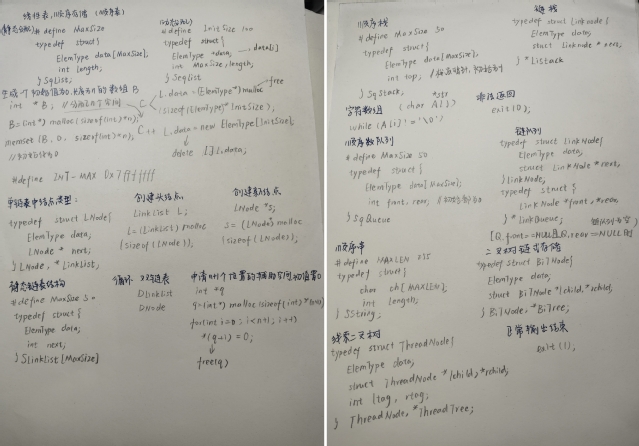 线性表,顺序存储 (顺序表)
(静态分配) # define MaxSize
typedef struct{
ElemType data[MaxSize];
int length;
} SqList;
(动态分配)
# define InitSize 100
typedef struct{
ElemType *data;
int MaxSize, length;
} SeqList
生成一个初值为0,长度为n的数组 B
int *B; //分配n个空间
B=(int*) malloc(sizeof(int)*n);
memset(B, 0, sizeof(int)*n);
//初始化为0
C L.data=(ElemType*)malloc
free
(sizeof(ElemType)*InitSize);
C++ L.data=new ElemType[InitSize];
delete []L.data;
#define INT-MAX 0x7fffffff
单链表中结点类型:
typedef struct LNode{
ElemType data;
LNode * next;
} LNode, *LinkList;
创建头结点
LinkList L;
L=(LinkList) malloc
(sizeof(LNode));
创建新结点
LNode *s;
s=(LNode*)malloc
(sizeof(LNode));
静态链表结构
# define MaxSize 50
typedef struct{
ElemType data;
int next;
} SLinkList[MaxSize]
循环双链表
DLinkList
DNode
申请n+1个位置的辅助空间初值置0
int *q
q=(int*) malloc(sizeof(int)*(n+1))
for(int i=0; i<n+1; i++)
*(q+i)=0;
free(q)
顺序栈
# define MaxSize 50
typedef struct{
ElemType data[MaxSize];
int top;
} SqStack;
链栈
typedef struct Linknode{
ElemType data;
struct Linknode *next;
} *LiStack
字符数组 (char A[])
*str
while(A[i]!='\0')
非法返回
exit(0);
顺序队列
# define MaxSize 50
typedef struct{
ElemType data[MaxSize];
int front, rear;
} SqQueue
链队列
typedef struct LinkNode{
ElemType data;
struct LinkNode *next,
} linkNode;
typedef struct {
LinkNode *front, *rear;
} *LinkQueue;
Q.front==NULL且Q.rear==NULL时
顺序串
# define MAXLEN 255
typedef struct{
char ch[MAXLEN];
int length;
} SString;
二叉树链式存储
typedef struct BiTNode{
ElemType data;
struct BiTNode *lchild, *rchild;
} BiTNode, *BiTree;
线索二叉树
typedef struct ThreadNode{
ElemType data;
struct ThreadNode *lchild, *rchild;
int ltag, rtag;
} ThreadNode, *ThreadTree;
exit(1);